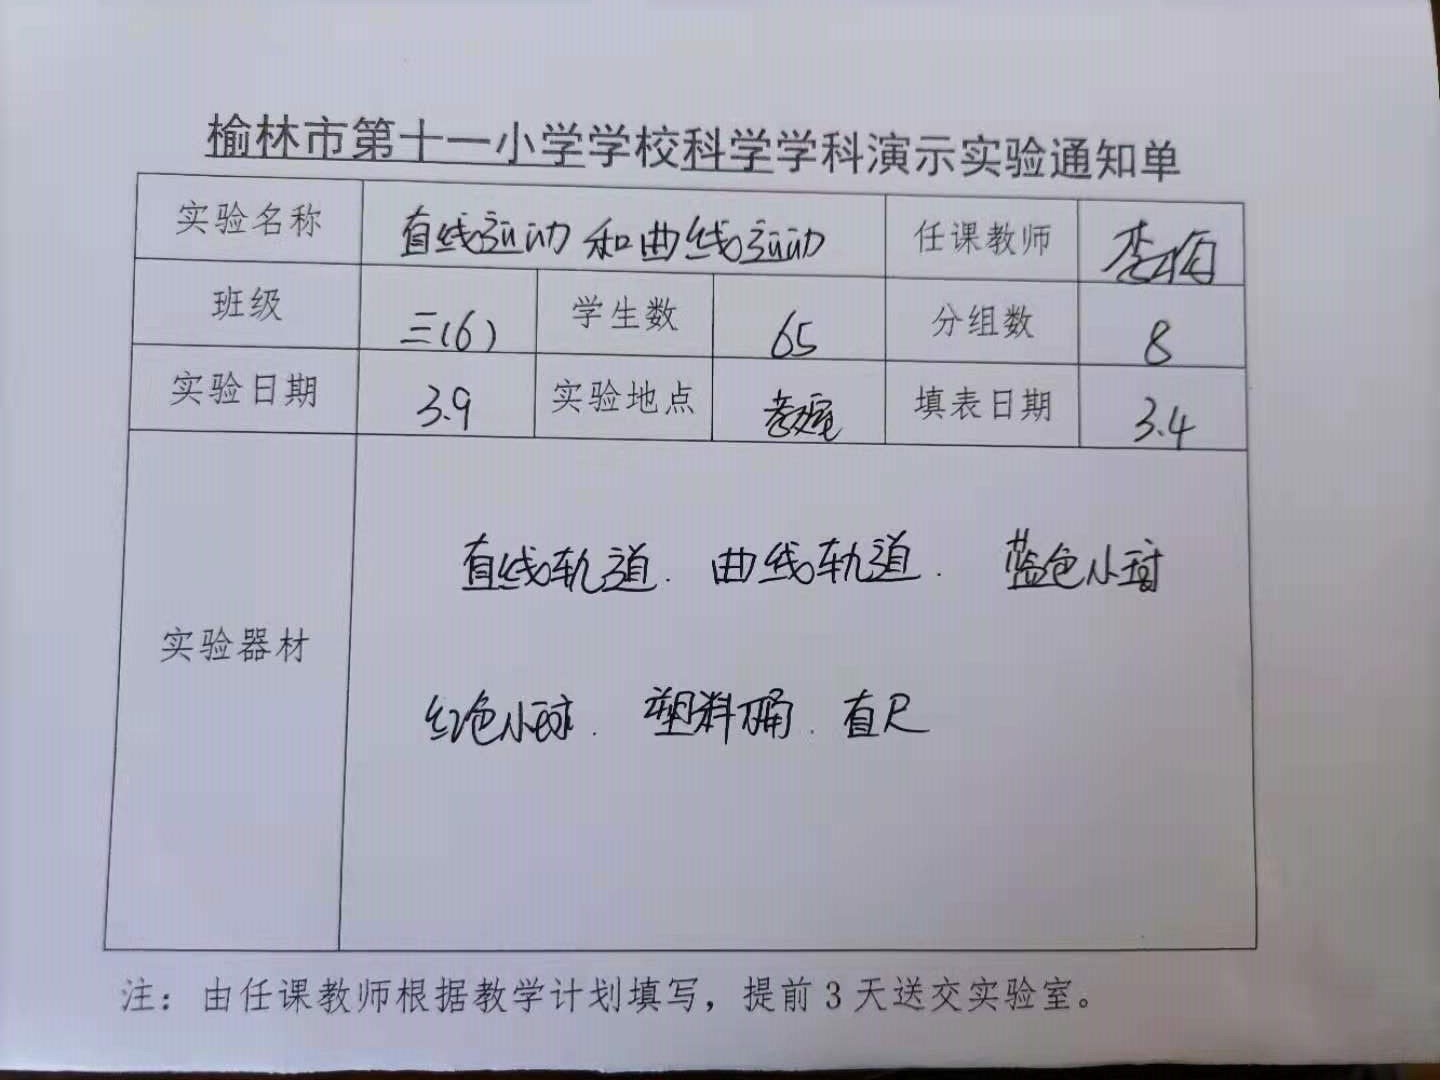 榆林市第十一小学学校科学学科演示实验通知单
实验名称 直线运动和曲线运动 任课教师 李
班级 三(6) 学生数 65 分组数 8
实验日期 3.9 实验地点 教室 填表日期 3.4
实验器材
直线轨道. 曲线轨道. 蓝色小球
红色小球. 塑料桶. 直尺
注：由任课教师根据教学计划填写，提前3天送交实验室。